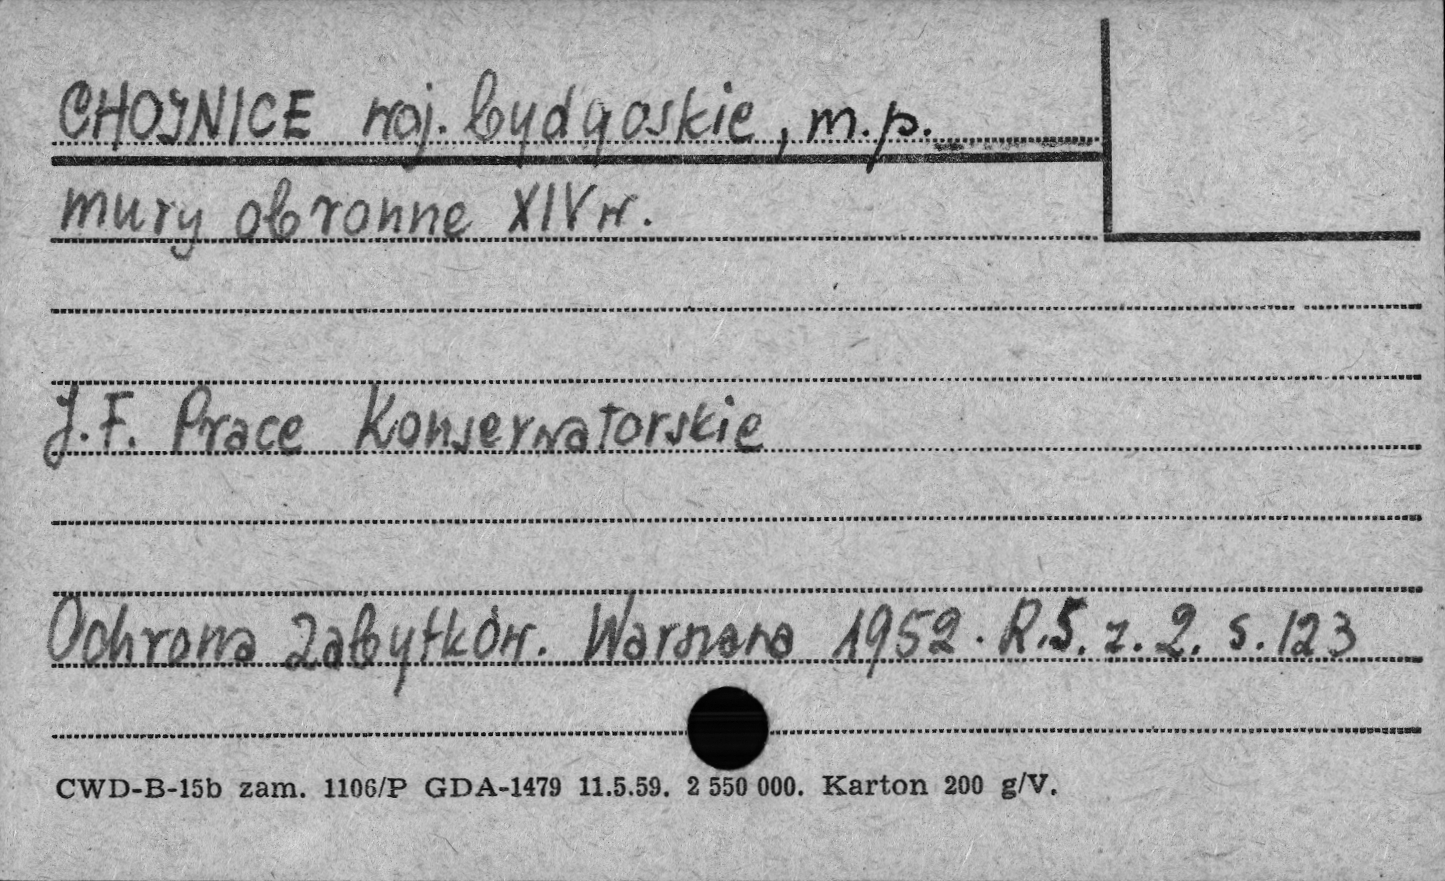 CHOJNICE woj. bydgoskie, m.p.
mury obronne XIV w.
J.F. Prace Konserwatorskie
Ochrona Zabytków. Warszawa 1952. R.5. z. 2. s. 123
CWD-B-15b zam. 1106/P GDA-1479 11.5.59. 2 550 000. Karton 200 g/V.